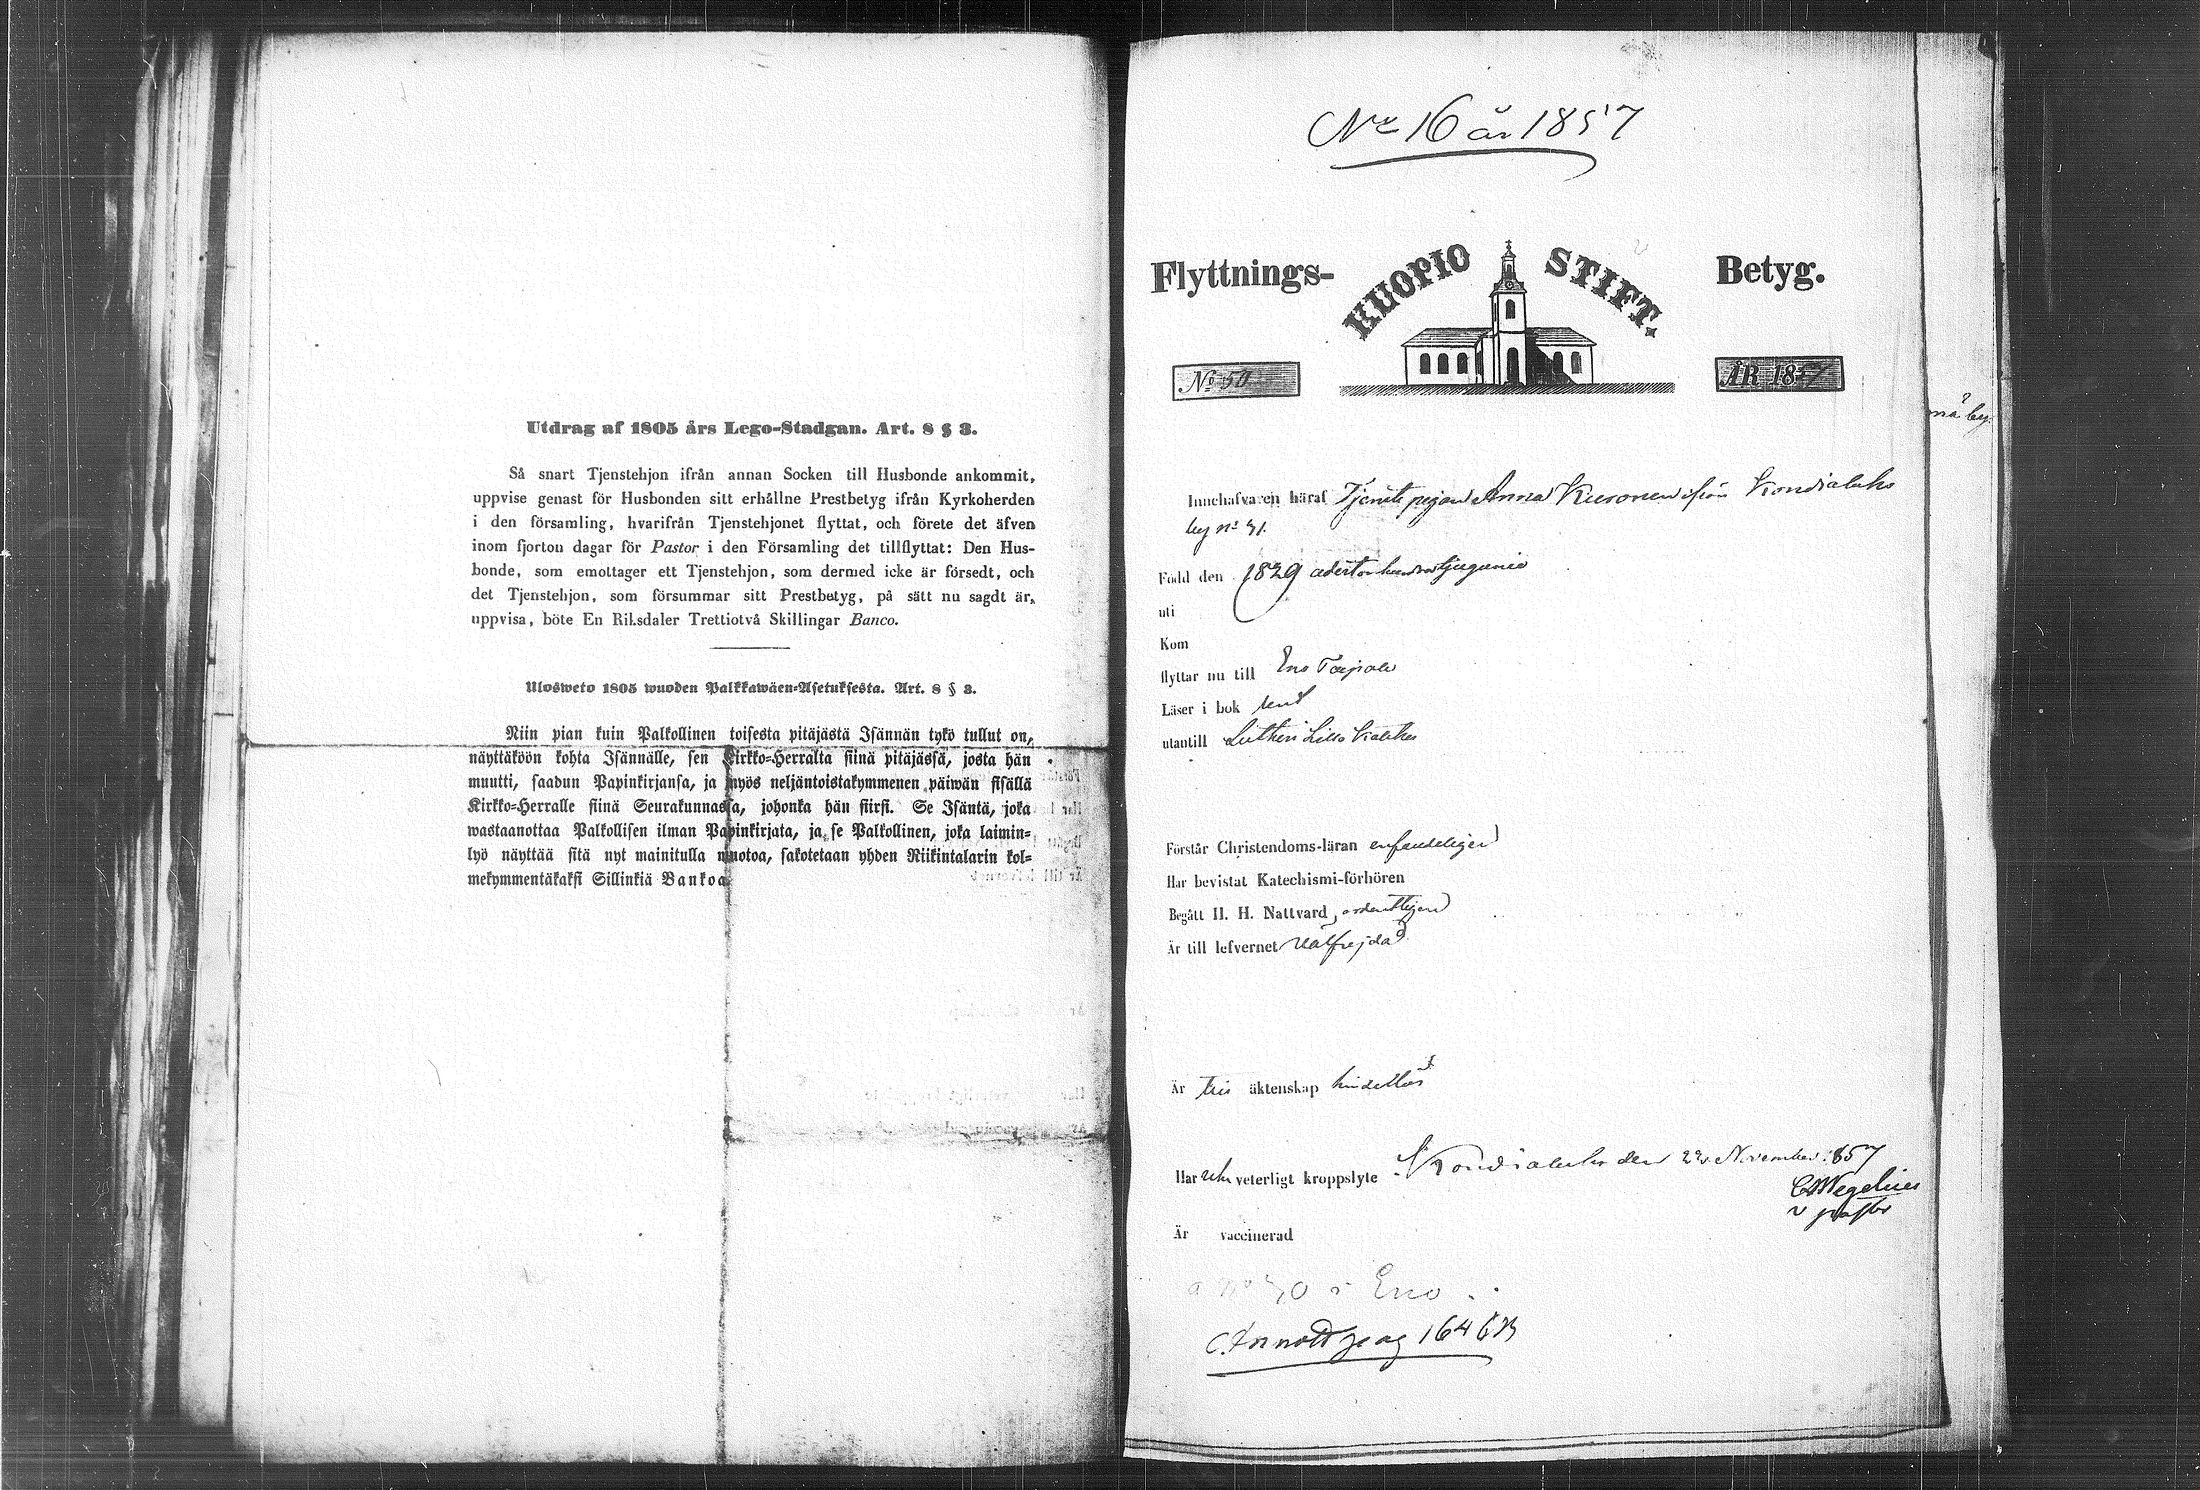 Utdrag af 1805 års Lego-Stadgan. Art. 8 § 3.
Så snart Tjenstehjon ifrån annan Socken till Husbonde ankommit,
uppvise genast för Husbonden sitt erhållne Prestbetyg ifrån Kyrkoherden
i den församling, hvarifrån Tjenstehjonet flyttat, och förete det äfven
inom fjorton dagar för Pastor i den Församling det tillflyttat: Den Hus-
bonde, som emottager ett Tjenstehjon, som dermed icke är försedt, och
det Tjenstehjon, som försummar sitt Prestbetyg, på sätt nu sagdt är,
uppvisa, böte En Riksdaler Trettiotvå Skillingar Banco.
Ulosweto 1805 wuoden Palkkawäen-Asetuksesta. Art. 8 § 3.
Niin pian kuin Palkollinen toisesta pitäjästä Isännän tykö tullut on,
näyttäköön kohta Isännälle, sen Kirkko-Herralta siinä pitäjässä, josta hän
muutti, saadun Papinkirjansa, ja myös neljäntoistakymmenen päiwän sisällä
Kirkko-Herralle siinä Seurakunnassa, johonka hän siirsi. Se Isäntä, joka
wastaanottaa Palkollisen ilman Papinkirjata, ja se Palkollinen, joka laimin-
lyö näyttää sitä nyt mainitulla muotoa, sakotetaan yhden Riikintalarin kol-
mekymmentäkaksi Sillinkiä Bankoa.
No 16 år 1857
Flyttnings- KUOPIO STIFT. Betyg.
No 50 ÅR 1857
Innehafvaren häraf Tjenste pigan Anna Kuronen ifrån Kondialaks
by no 41.
Född den 1829 adertonhundratjugunio
uti
Kom
flyttar nu till Eno
Läser i bok rent
utantill Lutheri Lilla
Förstår Christendoms-läran enfaldeligen
Har bevistat Katechismi-förhören
Begått H. H. Nattvard ordentligen
Är till lefvernet välfrejdad
Är till äktenskap hinderlös
Har veterligt kroppslyte. Kondialaks den 22 November 1857
C Wegelius
v pastor
Är vaccinerad
No 40 i Eno
Annott pag 164
nå by.